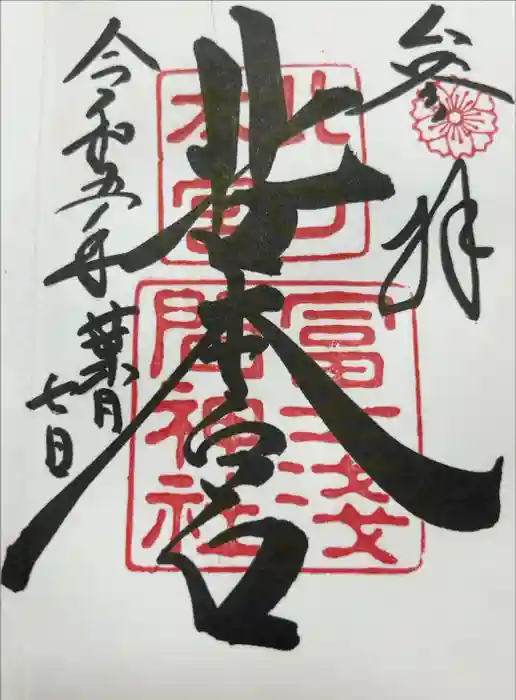 参拝
北口本宮
令和五年
葉月
七日
北口
本宮
冨士浅
間神社